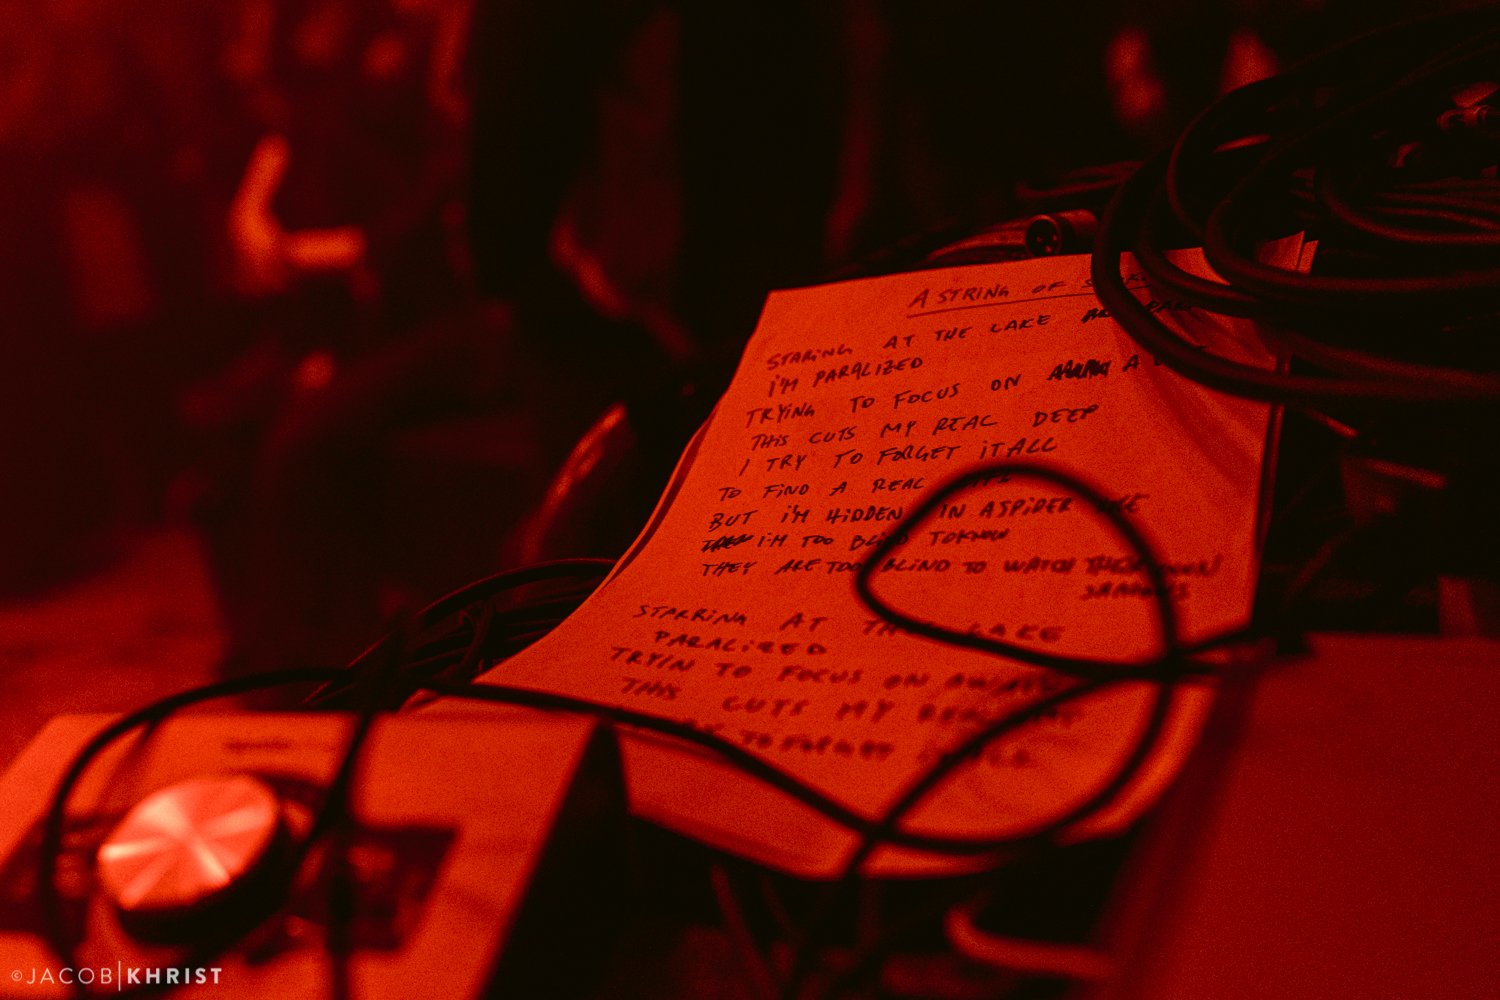 A STRING OF
STARING AT THE LAKE
I'M PARALIZED
TRYING TO FOCUS ON A
THIS CUTS MY REAL DEEP
I TRY TO FORGET IT ALL
TO FIND A REAL
BUT I'M HIDDEN IN A SPIDER
I'M TOO BLIND TO KNOW
THEY ARE TOO BLIND TO WATCH
STARRING AT LAKE
PARALIZED
TRYIN TO FOCUS ON
THIS CUTS MY
TO FORGET
©JACOB|KHRIST